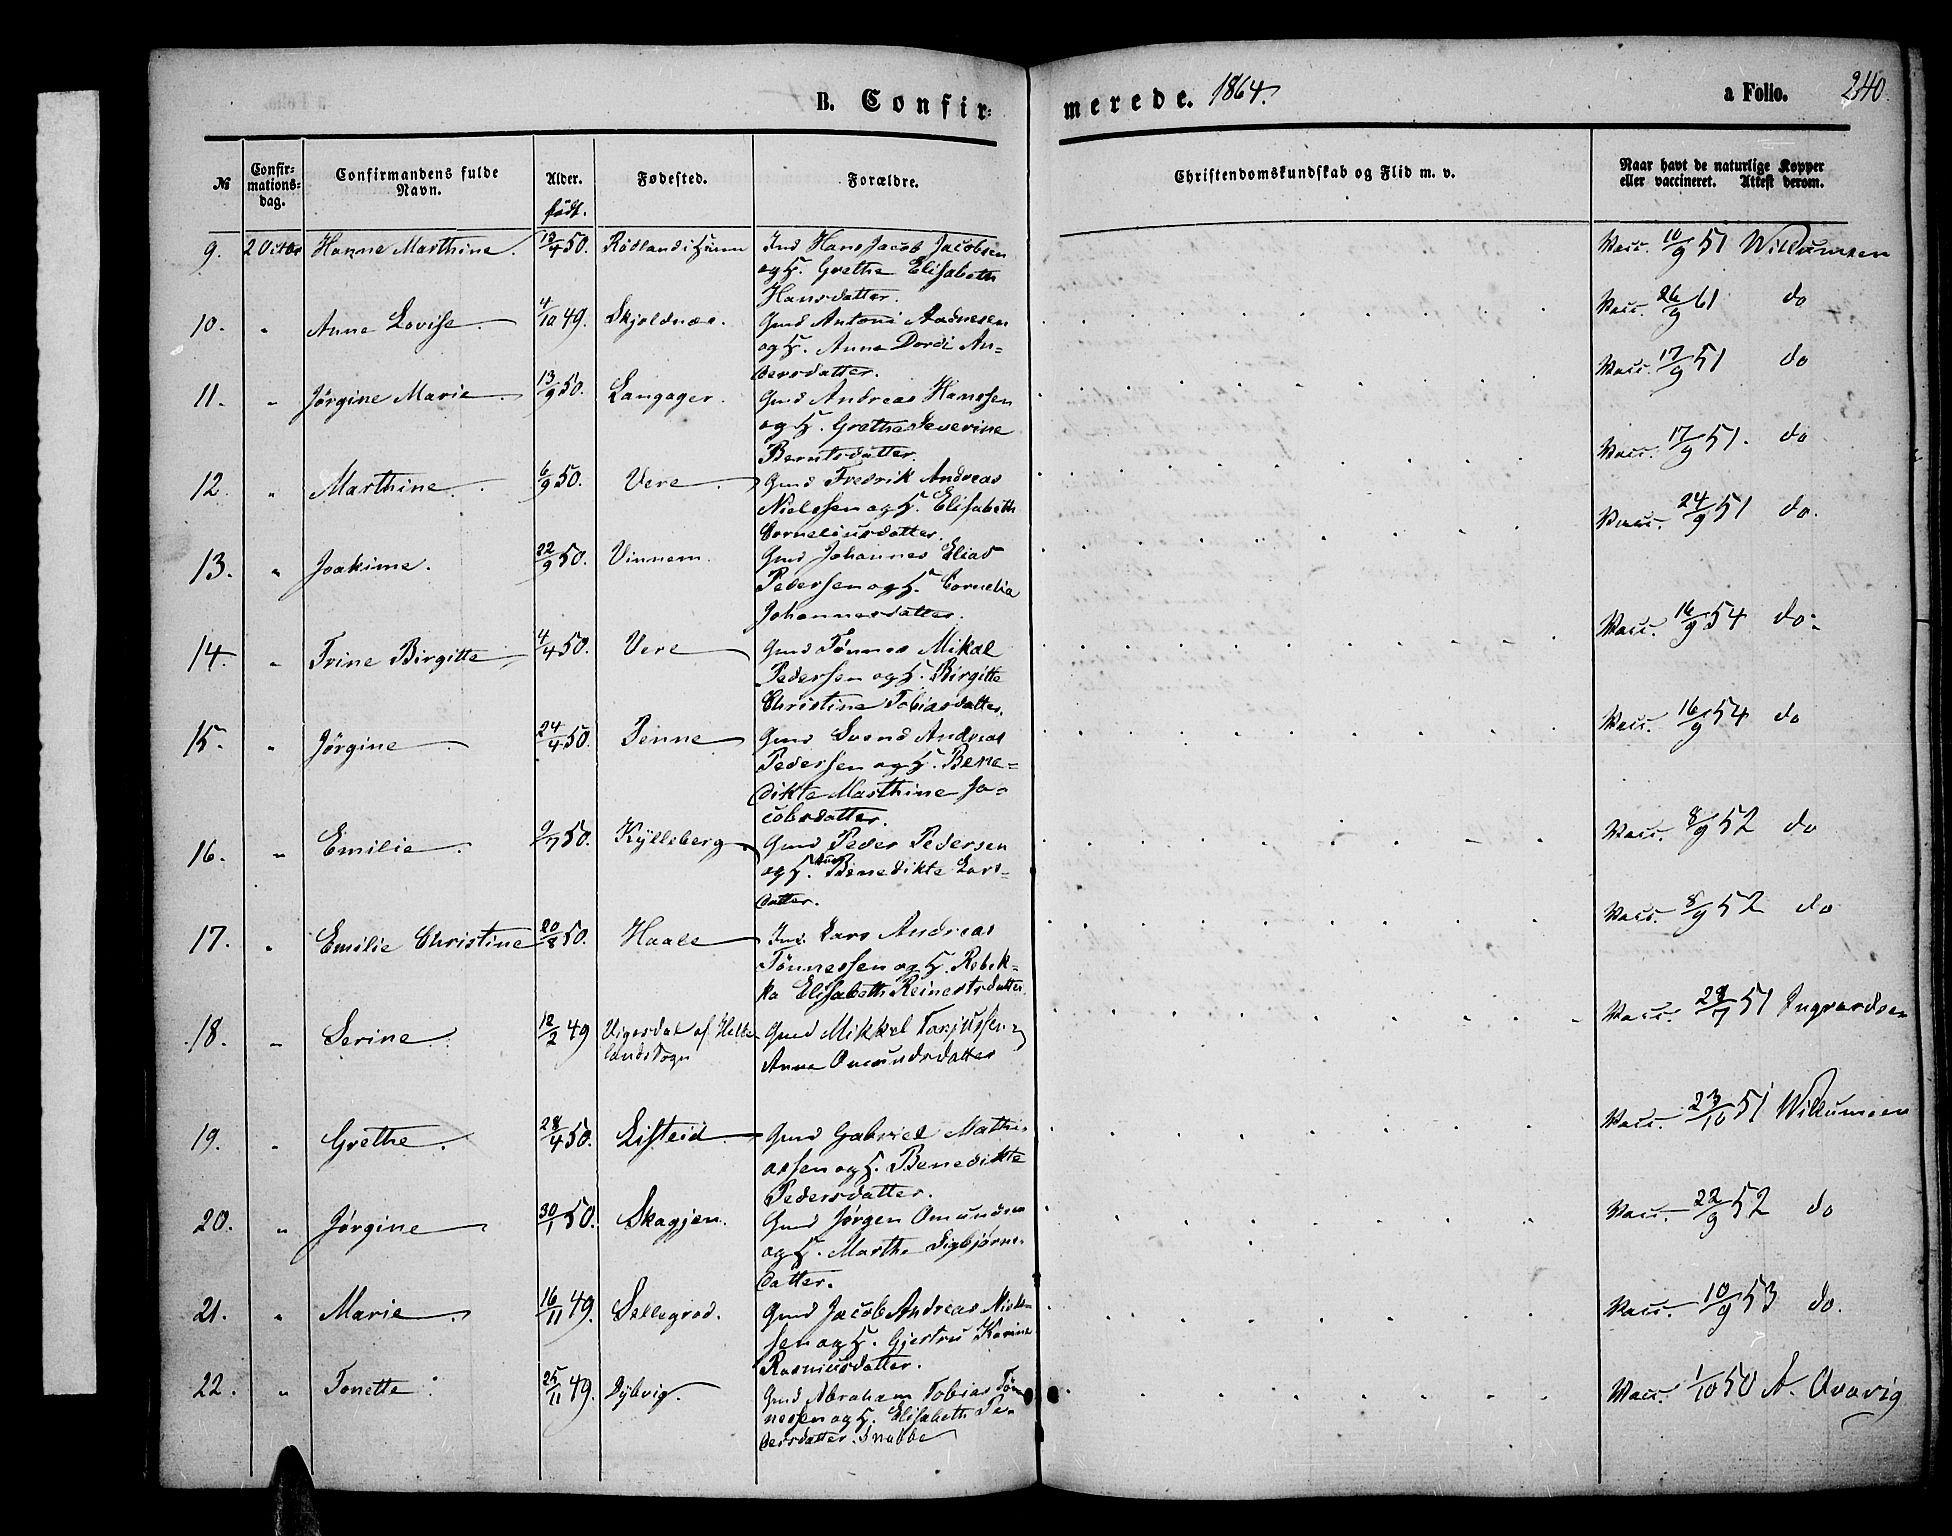 B. Confir=
merede. 1864.
a Folio. 240.
№
Confir-
mations-
dag.
Confirmandens fulde
Navn.
Alder.
født.
Fødested.
Forældre.
Christendomskundskab og Flid m. v.
Naar havt de naturlige Kopper
eller vaccineret. Attest derom.
9. 2 Octbr Hanne Marthine. 19/4 50. Rødland i Ind Hans Jacob Jacobsen
og H. Grethe Elisabeth
Hansdatter.
Vacc. 10/9 51 Willumsen
10. " Anne Lovise. 4/10 49. Skjoldnæs. Gmd Antoni Aadnesen
og H. Anne Dordi An-
dersdatter.
Vacc. 26/9 61 do
11. " Jørgine Marie. 13/9 50. Langager. Gmd Andreas Hanssen
og H. Grethe Severine
Berntsdatter.
Vacc. 17/9 51 do
12. " Marthine. 6/9 50. Vere Gmd Fredrik Andreas
Nielssen og H. Elisabeth
Corneliusdatter.
Vacc. 17/9 51. do
13. " Joakime. 22/9 50. Vinnem. Gmd Johannes Elias
Pedersen og H. Cornelia
Johannesdatter.
Vacc. 24/9 51 do.
14. " Trine Birgitte 4/4 50. Vere Gmd Tønnes Mikal
Pedersen og H. Birgitte
Christine Tobiasdatter.
Vacc. 16/9 54 do.
15. " Jørgine 24/4 50. Penne Gmd Svend Andreas
Pedersen og H. Bene=
dikte Marthine Ja=
cobsdatter.
Vacc. 16/9 54 do
16. " Emilie. 9/7 50. Kylleberg. Gmd Peder Pedersen
og H. Benedikte Lars-
datter.
Vacc. 8/9 52 do
17. " Emilie Christine 20/8 50. Haale Ind. Lars Andreas
Tønnessen og H. Rebek-
ka Elisabeth Reinertsdatter
Vacc. 8/9 52 do
18. " Serine. 12/2 49 Vigesdal af Helle
lands Sogn
Gmd Mikkel Tarjussen
Anna Omundsdatter
Vacc. 28/7 51 Ingvardsen
19. " Grethe. 28/4 50. Listeid Gmd Gabriel Mathi
assen og H. Benedikte
Pedersdatter.
Vacc. 23/10 51 Willumsen
20. " Jørgine 30/1 50. Skagjen. Gmd Jørgen Omundsen
og H. Marthe Sigbjørns-
datter.
Vacc. 22/9 52 do
21. " Marie 16/11 49. Sellegrod. Gmd Jacob Andreas Niels-
sen og H. Gjertru Karine
Rasmusdatter.
Vacc. 10/9 53 do.
22. " Tonette. 25/11 49. Dybvig. Gmd Abraham Tobias Tøn
nessen og H. Elisabeth Pe-
dersdatter. Snabbe
Vacc. 1/10 50 A. Aavavig